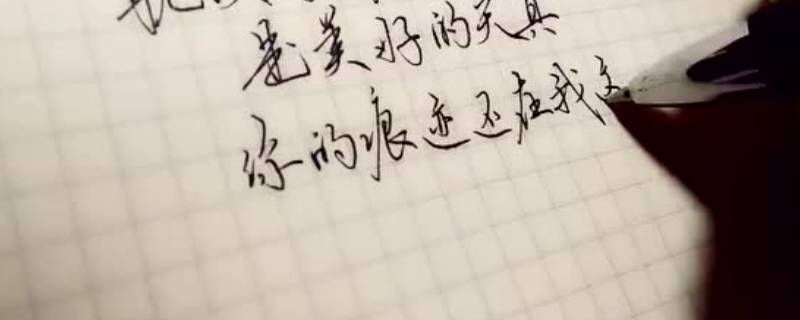 是美好的天具
你的痕迹还在我